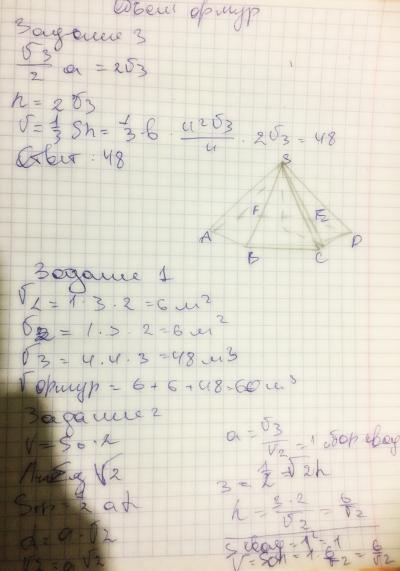 Объем фигур
Задание 3
√3/2 a = 2√3
h = 2√3
V = 1/3 Sh = 1/3 · 6 · 4²√3/4 · 2√3 = 48
Ответ: 48
S
F E
A B C D
Задание 1
V1 = 1 · 3 · 2 = 6 м²
V2 = 1 · 3 · 2 = 6 м²
V3 = 4 · 4 · 3 = 48 м3
Vфигур = 6 + 6 + 48 = 60 м³
Задание 2
V = So · 2
√2
= 1/2 ah
a = a · √2
√3 = a√2
a = √3/√2 = 1
3 = 1/2 √2h
h = 3·2/√2 = 6/√2
= 1² = 1
V = Soh = 1 · 6/√2 = 6/√2